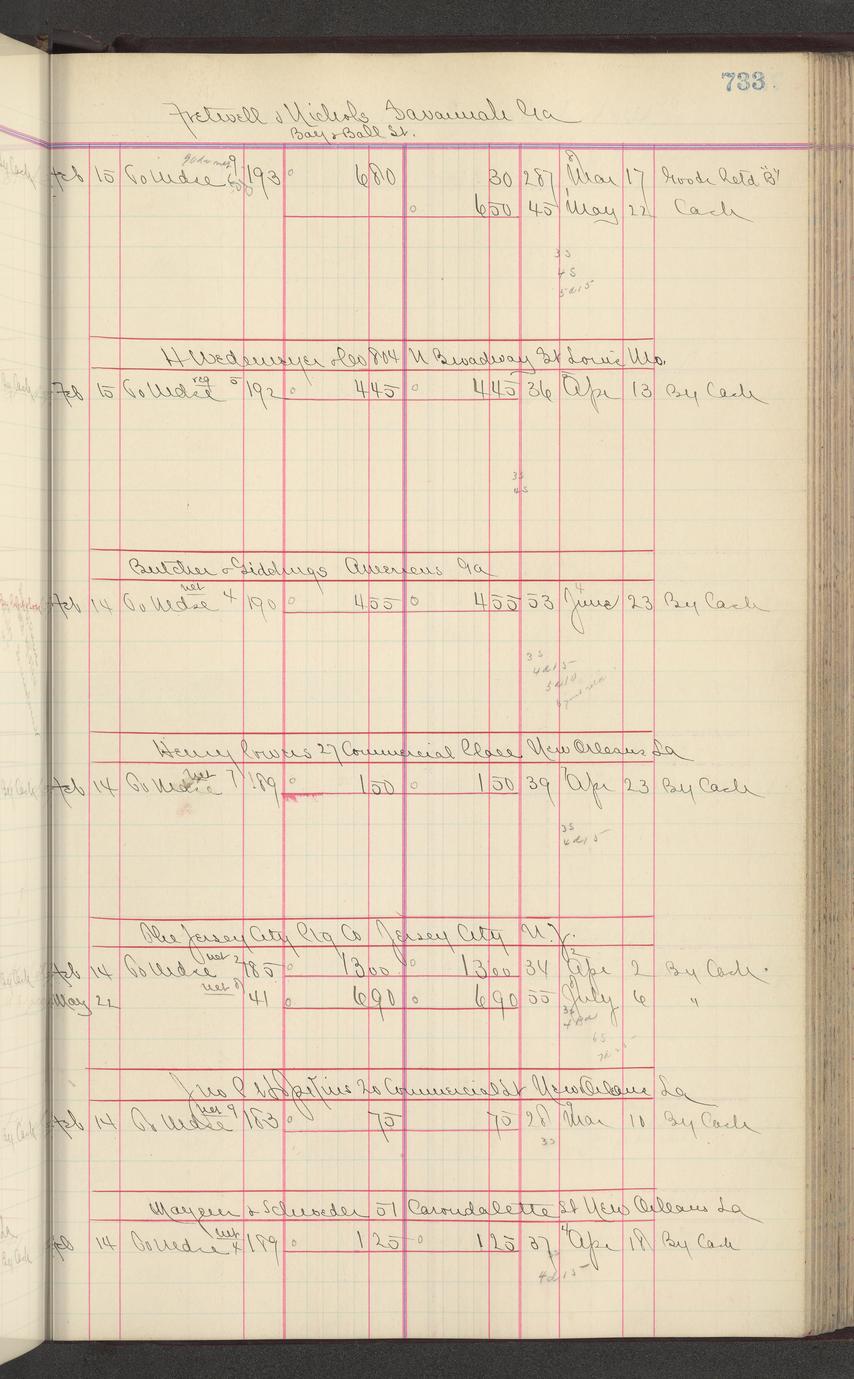 733
Fretwell & Nichols Savannah Ga
Bay & Ball St.
Feb 15 To Mdse 9 193 680 30 287 Mar 17 Goods Retd "B"
650 45 May 22 Cash
3 S
4 S
5 d 15
H Wedemeyer & Co 804 N Broadway St Louis Mo.
Feb 15 To Mdse reg 5 192 445 445 36 Apr 13 By Cash
3 S
4 S
Butcher & Giddings Americus Ga
Feb 14 To Mdse net 4 190 455 455 53 June 23 By Cash
3 S
4 d 15
5 d 10
Henry 27 Commercial Place New Orleans La
Feb 14 To Mdse net 7 189 150 150 39 Apr 23 By Cash
3 S
4 d 15
The Jersey City Ptg Co Jersey City N.J.
Feb 14 To Mdse net 2 185 1300 1300 34 Apr 2 By Cash
May 22 net 8 41 690 690 55 July 6 "
Jno P Hopkins 20 Commercial St New Orleans La
Feb 14 To Mdse net 9 183 75 75 28 Mar 10 By Cash
3 S
Mayer & Schroeder 51 Carondalette St New Orleans La
Feb 14 To Mdse net 4 189 125 125 37 Apr 18 By Cash
4 d 15